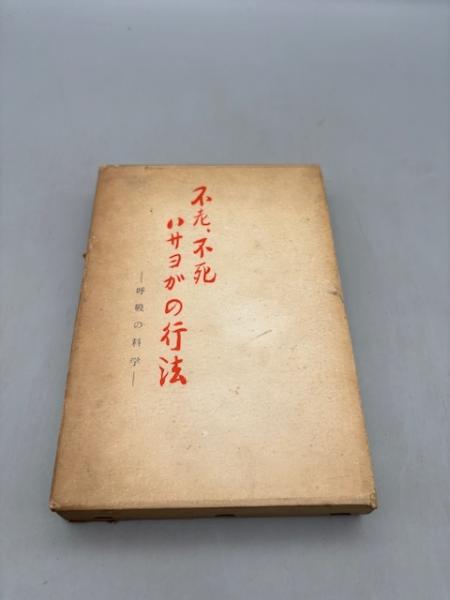 不老、不死
ハサヨガの行法
—呼吸の科学—